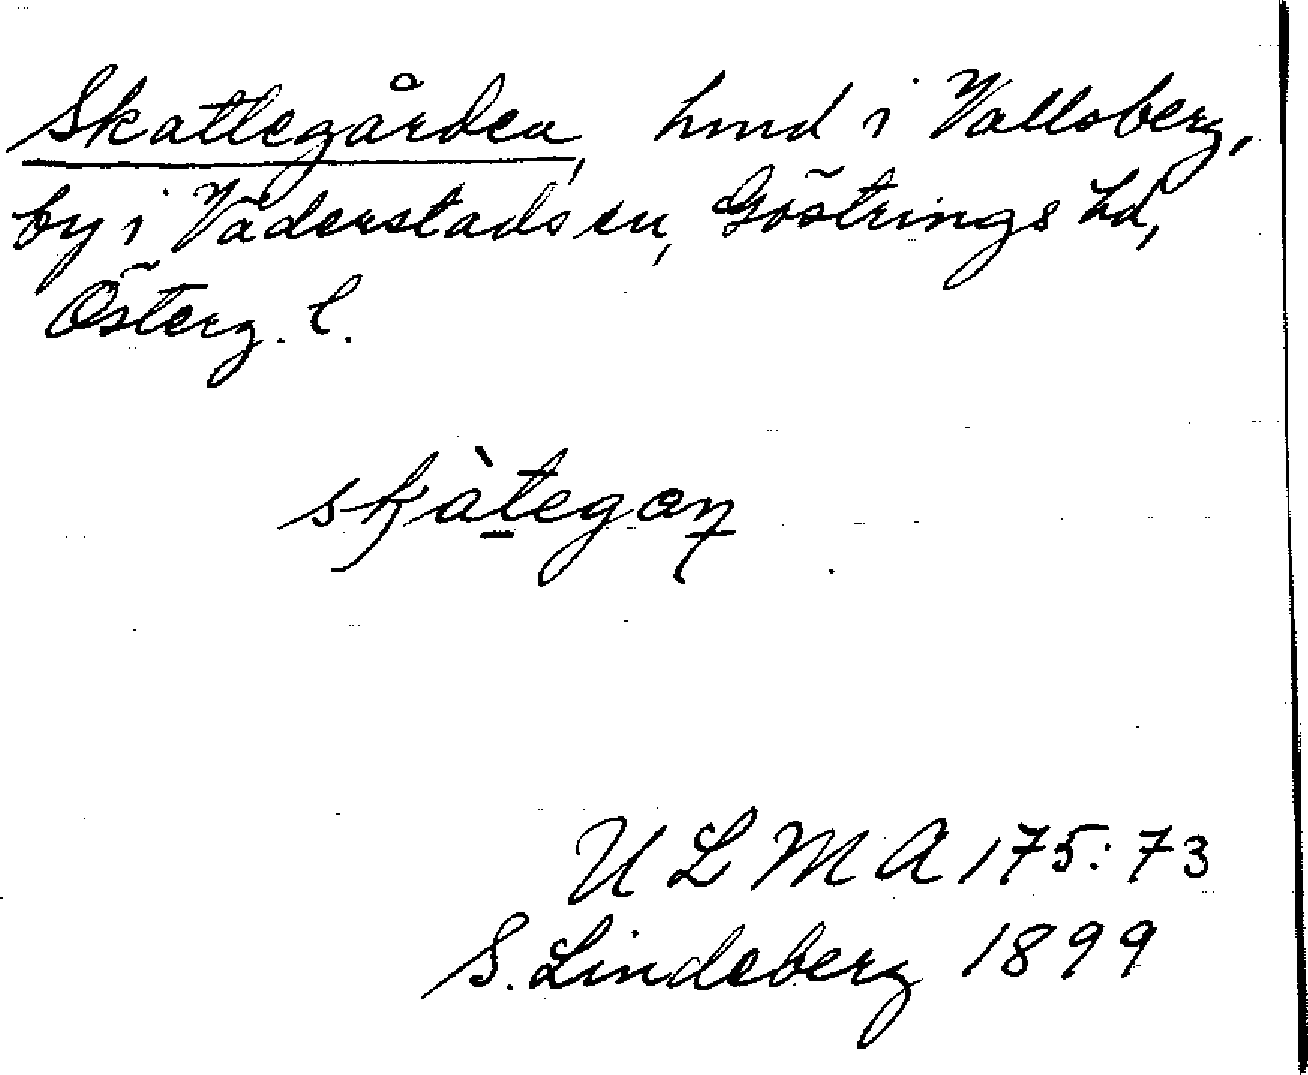 Skattegården, hmd i Vallsberg,
by i Väderstads sn, Göstrings hd,
Österg. l.
skàtegaɳ
ULMA 175:73
S. Lindeberg 1899